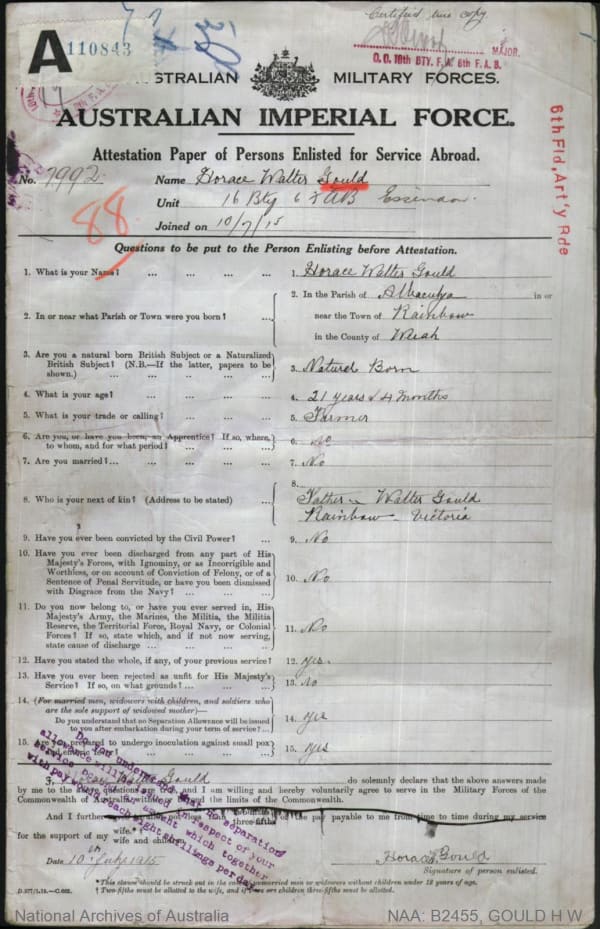 Certified true copy
A 110843
MAJOR.
O.C. 16th BTY. F.A. 6th F.A.B.
AUSTRALIAN MILITARY FORCES.
AUSTRALIAN IMPERIAL FORCE.
6th Fld, Art'y Rde
Attestation Paper of Persons Enlisted for Service Abroad.
No. 7992 Name Horace Walter Gould
Unit 16 Bty 6 FAB Essendon.
88
Joined on 10/7/15
Questions to be put to the Person Enlisting before Attestation.
1. What is your Name? ... ... ... ... 1. Horace Walter Gould
2. In or near what Parish or Town were you born? ... 2. In the Parish of Albacutya in or
near the Town of Rainbow
in the County of Weah
3. Are you a natural born British Subject or a Naturalized
British Subject? (N.B.—If the latter, papers to be
shown.) ... ... ... ... 3. Natural Born
4. What is your age? ... ... ... ... 4. 21 years & 4 months
5. What is your trade or calling? ... ... ... 5. Farmer
6. Are you, or have you been, an Apprentice? If so, where,
to whom, and for what period? ... ... ... 6. No
7. Are you married? ... ... ... ... ... 7. No
8. Who is your next of kin? (Address to be stated) ... 8. Father Walter Gould
Rainbow Victoria
9. Have you ever been convicted by the Civil Power? ... 9. No
10. Have you ever been discharged from any part of His
Majesty's Forces, with Ignominy, or as Incorrigible and
Worthless, or on account of Conviction of Felony, or of a
Sentence of Penal Servitude, or have you been dismissed
with Disgrace from the Navy? ... ... ... 10. No
11. Do you now belong to, or have you ever served in, His
Majesty's Army, the Marines, the Militia, the Militia
Reserve, the Territorial Force, Royal Navy, or Colonial
Forces? If so, state which, and if not now serving,
state cause of discharge ... ... ... 11. No
12. Have you stated the whole, if any, of your previous service? 12. Yes.
13. Have you ever been rejected as unfit for His Majesty's
Service? If so, on what grounds? ... ... 13. No
14. (For married men, widowers with children, and soldiers who
are the sole support of widowed mother)—
Do you understand that no Separation Allowance will be issued
to you after embarkation during your term of service? ... 14. Yes
15. Are you prepared to undergo inoculation against small pox
and enteric fever? ... ... ... 15. Yes
Do you understand that no separation
allowance will be issued in respect of your
service beyond an amount which together
with pay reaches eight shillings per day.
Horace Walter Gould do solemnly declare that the above answers made
by me to the above questions are true, and I am willing and hereby voluntarily agree to serve in the Military Forces of the
Commonwealth of Australia within or beyond the limits of the Commonwealth.
And I further three-fifths of the pay payable to me from time to time during my service
for the support of my wife.*
wife and children.
Date 10th July 1915 Horace Gould
Signature of person enlisted.
*This clause should be struck out in the case of unmarried men or widowers without children under 18 years of age.
† Two-fifths must be allotted to the wife, and if there are children three-fifths must be allotted.
National Archives of Australia NAA: B2455, GOULD H W